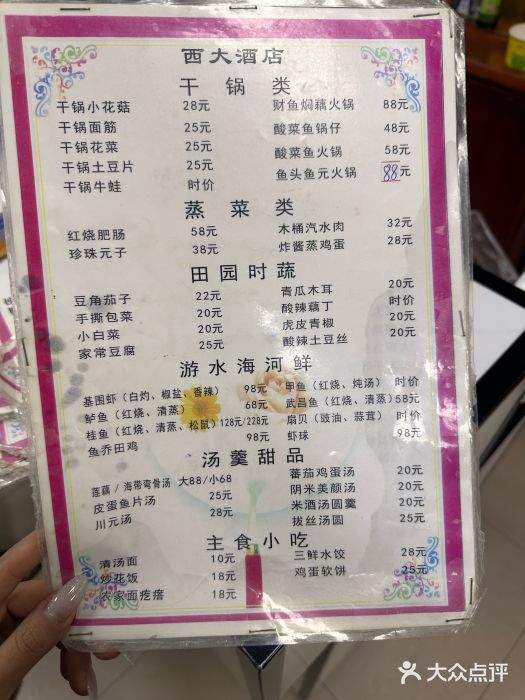 西大酒店
干锅类
干锅小花菇 28元 财鱼焖藕火锅 88元
干锅面筋 25元 酸菜鱼锅仔 48元
干锅花菜 25元 酸菜鱼火锅 58元
干锅土豆片 25元 鱼头鱼元火锅 88元
干锅牛蛙 时价
蒸菜类
红烧肥肠 58元 木桶汽水肉 32元
珍珠元子 38元 炸酱蒸鸡蛋 28元
田园时蔬
豆角茄子 22元 青瓜木耳 20元
手撕包菜 20元 酸辣藕丁 时价
小白菜 20元 虎皮青椒 20元
家常豆腐 25元 酸辣土豆丝 20元
游水海河鲜
基围虾（白灼、椒盐、香辣） 98元 甲鱼（红烧、炖汤） 时价
鲈鱼（红烧、清蒸） 68元 武昌鱼（红烧、清蒸）58元
桂鱼（红烧、清蒸、松鼠）128元/228元 扇贝（豉油、蒜茸） 时价
鱼乔田鸡 98元 虾球 98元
汤羹甜品
莲藕/海带弯骨汤 大88/小68 番茄鸡蛋汤 20元
皮蛋鱼片汤 25元 阴米美颜汤 20元
川元汤 28元 米酒汤圆羹 20元
拔丝汤圆 25元
主食小吃
清汤面 10元 三鲜水饺 28元
炒花饭 18元 鸡蛋软饼 25元
农家面疙瘩 18元
大众点评